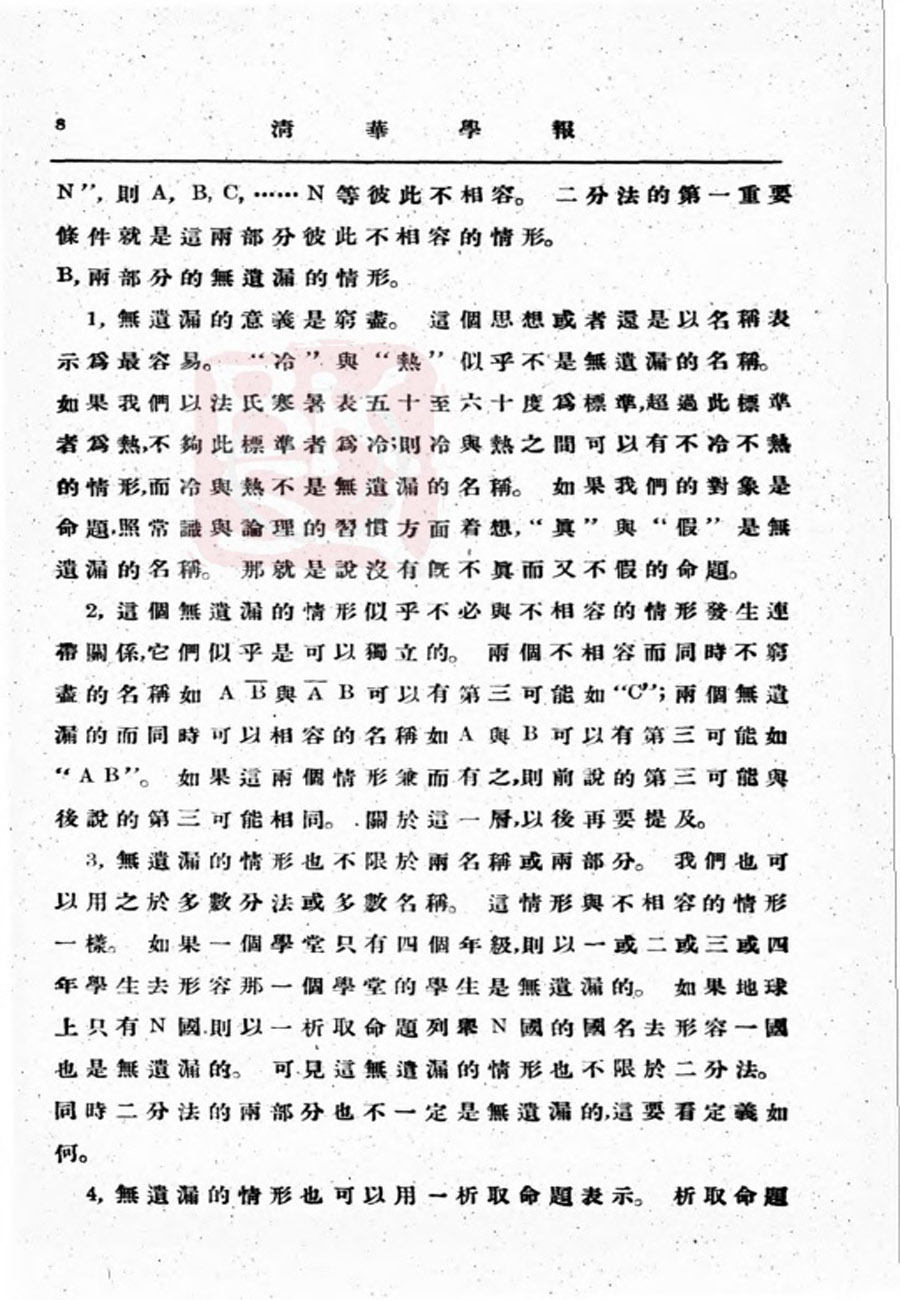 8 清華學報
N”, 則 A, B, C, ······ N 等彼此不相容。 二分法的第一重要
條件就是這兩部分彼此不相容的情形。
B, 兩部分的無遺漏的情形。
1, 無遺漏的意義是窮盡。 這個思想或者還是以名稱表
示爲最容易。 “冷”與“熱”似乎不是無遺漏的名稱。
如果我們以法氏寒暑表五十至六十度爲標準,超過此標準
者爲熱,不夠此標準者爲冷;則冷與熱之間可以有不冷不熱
的情形,而冷與熱不是無遺漏的名稱。 如果我們的對象是
命題,照常識與論理的習慣方面着想,“眞”與“假”是無
遺漏的名稱。 那就是說沒有旣不眞而又不假的命題。
2, 這個無遺漏的情形似乎不必與不相容的情形發生連
帶關係,它們似乎是可以獨立的。 兩個不相容而同時不窮
盡的名稱如 A B̅ 與 A̅ B 可以有第三可能如“C”; 兩個無遺
漏的而同時可以相容的名稱如 A 與 B 可以有第三可能如
“A B”。 如果這兩個情形兼而有之,則前說的第三可能與
後說的第三可能相同。 關於這一層,以後再要提及。
3, 無遺漏的情形也不限於兩名稱或兩部分。 我們也可
以用之於多數分法或多數名稱。 這情形與不相容的情形
一樣。 如果一個學堂只有四個年級,則以一或二或三或四
年學生去形容那一個學堂的學生是無遺漏的。 如果地球
上只有 N 國,則以一析取命題列舉 N 國的國名去形容一國
也是無遺漏的。 可見這無遺漏的情形也不限於二分法。
同時二分法的兩部分也不一定是無遺漏的,這要看定義如
何。
4, 無遺漏的情形也可以用一析取命題表示。 析取命題